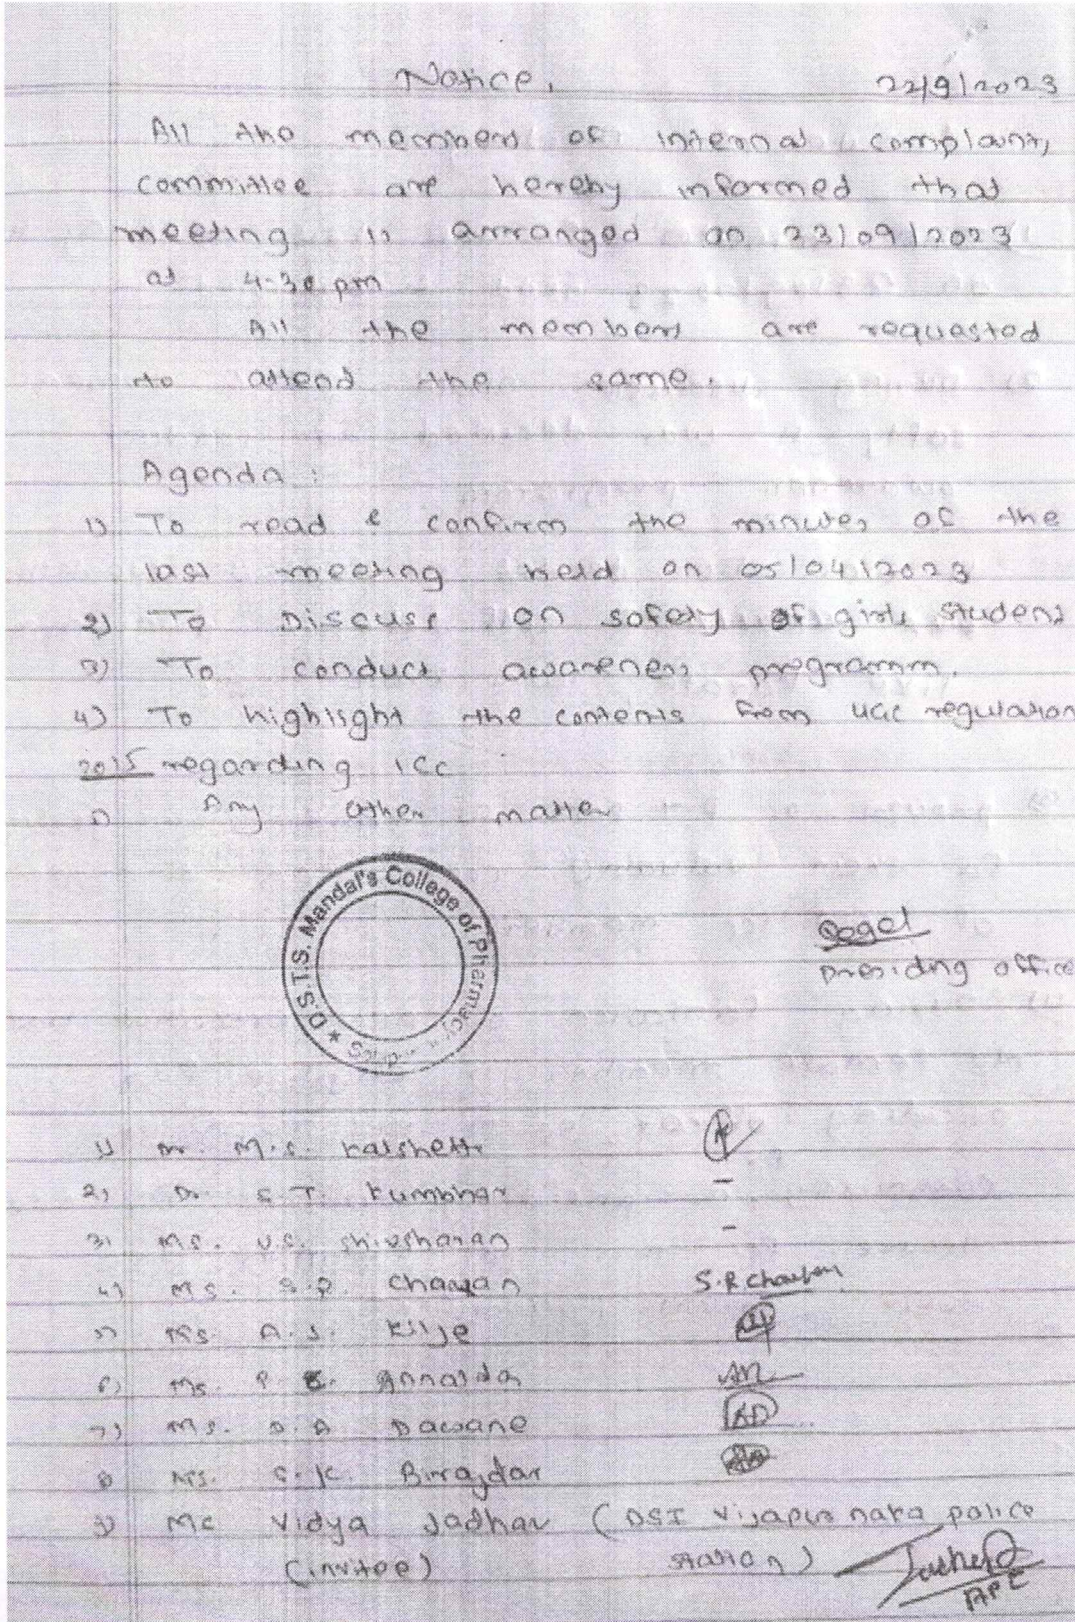 Notice.
22/9/2023
All the members of internal complaint,
committee are hereby informed that
meeting is arranged on 23/09/2023
at 4-30 pm
All the members are requested
to attend the same.
Agenda :
1) To read & confirm the minutes of the
last meeting held on 05/04/2023
2) To Discuss on safety of girls student
3) To conduct awareness programm.
4) To highlight the contents from UGC regulation
2015 regarding ICC
5) Any other matter
D.S.T.S. Mandal's College of Pharmacy
Presiding office
1) Dr. M.S. Kalshetti
2) Dr. S.T. Kumbhar -
3) Ms. V.S. Shivsharan -
4) Ms. S.R. Chavan S.R Chavan
5) Ms. A.S. Kilje
6) Ms. P. Gonalda
7) Ms. D.A. Dawane
8) Ms. S.K. Birajdar
9) Ms Vidya Jadhav (DSI Vijapur naka police
(invitee) station)